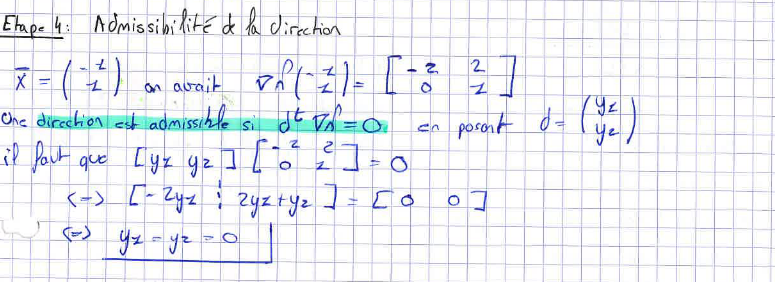 Etape 4: Admissibilité de la direction
x̄ = (-1 1) on avait ∇h(-1 1) = [-2 2 0 1]
Une direction est admissible si dᵗ ∇h = 0. en posant d = (y1 y2)
il faut que [y1 y2] [-2 2 0 1] = 0
<=> [-2y1 ¦ 2y1+y2] = [0 0]
<=> y1 = y2 = 0